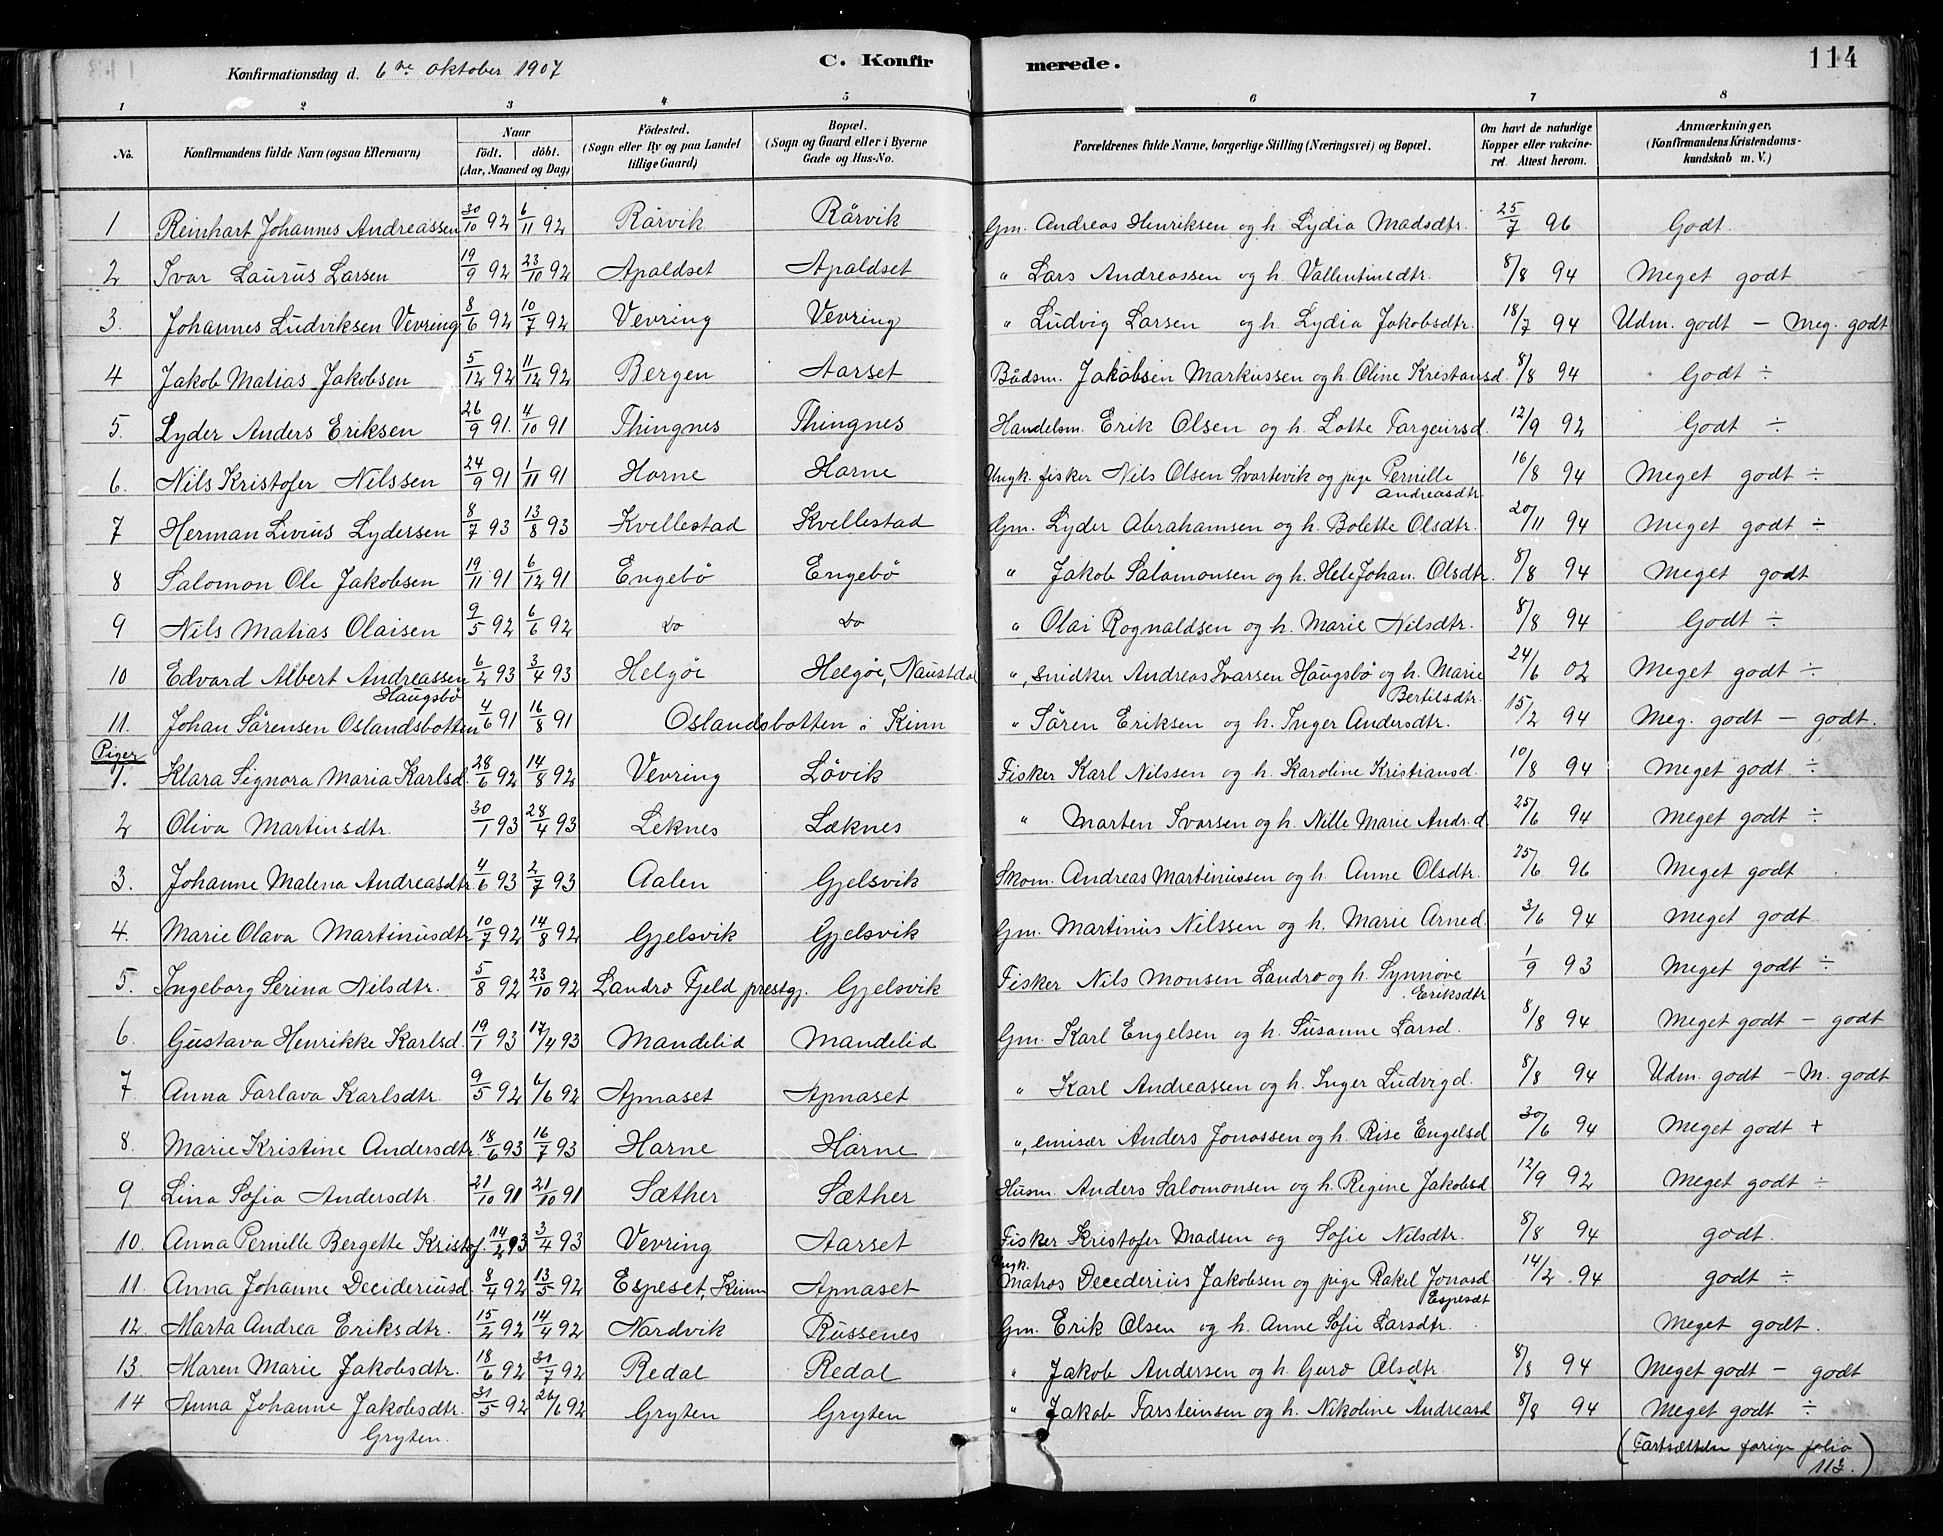 Konfirmationsdag d. 6 de oktober 1907 C. Konfir merede. 114
1 2 3 4 5 6 7 8
No. Konfirmandens fulde Navn (ogsaa Efternavn) Naar födt. döbt. (Aar, Maaned og Dag) Födested. (Sogn eller By og paa Landet tillige Gaard) Bopæl. (Sogn og Gaard eller i Byerne Gade og Hus-No. Forældrenes fulde Navne, borgerlige Stilling (Næringsvei) og Bopæl. Om havt de naturlige Kopper eller vakcineret. Attest herom. Anmærkninger. (Konfirmandens Kristendomskundskab m. V.)
1 Reinhart Johannes Andreassen 30/10 92 6/11 92 Rörvik Rörvik Gm. Andreas Henriksen og h. Lydia Madsdtr. 25/7 96 Godt.
2 Ivar Laurus Larsen 19/9 92 23/10 92 Apaldset Apaldset " Lars Andreassen og h. Vallentinsdtr. 8/8 94 Meget godt
3. Johannes Ludviksen Vevring 8/6 92 10/7 92 Vevring Vevring " Ludvig Larsen og h. Lydia Jakobsdtr. 18/7 94 Udm. godt - Meg. godt
4 Jakob Matias Jakobsen 5/12 92 11/12 92 Bergen Aarset Bådsm. Jakobsen Markussen og h. Oline Kristansd. 8/8 94 Godt ÷
5. Lyder Anders Eriksen 26/9 91. 4/10 91 Thingnes Thingnes Handelsm. Erik Olsen og h. Lotte Torgeirsd. 12/9 92 Godt ÷
6. Nils Kristofer Nilssen 24/9 91 1/11 91 Horne Horne Ungk. fisker Nils Olsen Svartevik og pige Pernille Andreasdtr. 16/8 94 Meget godt ÷
7 Herman Livius Lydersen 8/7 93 13/8 93 Kvellestad Kvellestad Gm. Lyder Abrahamsen og h. Bolette Olsdtr. 20/11 94 Meget godt ÷
8 Salomon Ole Jakobsen 19/11 91 6/12 91 Engebö Engebö " Jakob Salomonsen og h. Hele Johan. Olsdtr. 8/8 94 Meget godt
9 Nils Matias Olaisen 9/5 92 6/6 92 Do Do " Olai Rognaldsen og h. Marie Nilsdtr. 8/8 94 Godt ÷
10 Edvard Albert Andreassen Haugsbö 6/2 93 3/4 93 Helgöi Helgöi, Naustdal ", snidker Andreas Ivarsen Haugsbö og h. Marie Bertilsdtr. 24/6 02 Meget godt ÷
11. Johan Sörensen Oslandsbotten 4/6 91 16/8 91 Oslandsbotten i Kinn " Sören Eriksen og h. Inger Andersdtr. 15/2 94 Meg. godt - godt.
Piger
1. Klara Signora Maria Karlsd. 28/6 92 14/8 92 Vevring Lövik Fisker Karl Nilssen og h. Karoline Kristiansd. 10/8 94 Meget godt ÷
2 Oliva Martinsdtr. 30/1 93 28/4 93 Leknes Leknes " Marten Ivarsen og h. Nille Marie Andr.d 25/6 94 Meget godt ÷
3. Johanne Malena Andreasdtr. 4/6 93 2/7 93 Aalen Gjelsvik Skom. Andreas Martinussen og h. Anne Olsdtr. 25/6 96 Meget godt
4. Marie Olava Martinusdtr 10/7 92 14/8 92 Gjelsvik Gjelsvik Gm. Martinus Nilssen og h. Marie Arned. 3/6 94 Meget godt.
5. Ingeborg Serina Nilsdtr. 5/8 92 23/10 92 Landro Fjeld prestgj. Gjelsvik Fisker Nils Monsen Landro og h. Synnøve Eriksdtr 1/9 93 Meget godt ÷
6. Gustava Henrikke Karlsd. 19/1 93 17/4 93 Mandelid Mandelid Gm. Karl Engelsen og h. Susanne Larsd. 8/8 94 Meget godt - godt
7 Anna Torlava Karlsdtr. 9/5 92 6/6 92 Apnaset Apnaset " Karl Andreassen og h. Inger Ludvigd. 8/8 94 Udm. godt - M. godt
8. Marie Kristine Andersdtr. 18/6 93 16/7 93 Horne Horne ", emisær Anders Jonassen og h. Rise Engelsd 30/6 94 Meget godt +
9. Lina Sofia Andersdtr. 21/10 91 21/10 91 Sæther Sæther Husm. Anders Salomonsen og h. Regine Jakobsd 12/9 92 Meget godt ÷
10. Anna Pernille Bergette Kristof. 14/2 93 3/4 93 Vevring Aarset Fisker Kristofer Madsen og Sofie Nilsdtr. 8/8 94 godt.
11. Anna Johanne Decideriusd. 8/4 92 13/5 92 Espeset, Kinn Apnaset Ungk. Matros Decederius Jakobsen og pige Rakel Jonasd Espesdt 14/2 94 godt ÷
12. Marta Andrea Eriksdtr. 15/2 92 14/4 92 Nordvik Russenes Gm. Erik Olsen og h. Anne Sofie Larsdtr. Meget godt.
13. Maren Marie Jakobsdtr. 18/6 92 31/7 92 Redal Redal " Jakob Andersen og h. Guro Olsdtr. 8/8 94 Meget godt - godt
14 Anna Johanne Jakobsdtr. Gryten. 31/5 92 26/6 92 Gryten Gryten " Jakob Torsteinsen og h. Nikoline Andreasd 8/8 94 Meget godt ÷
(Fortsættelse forige folio 113.)